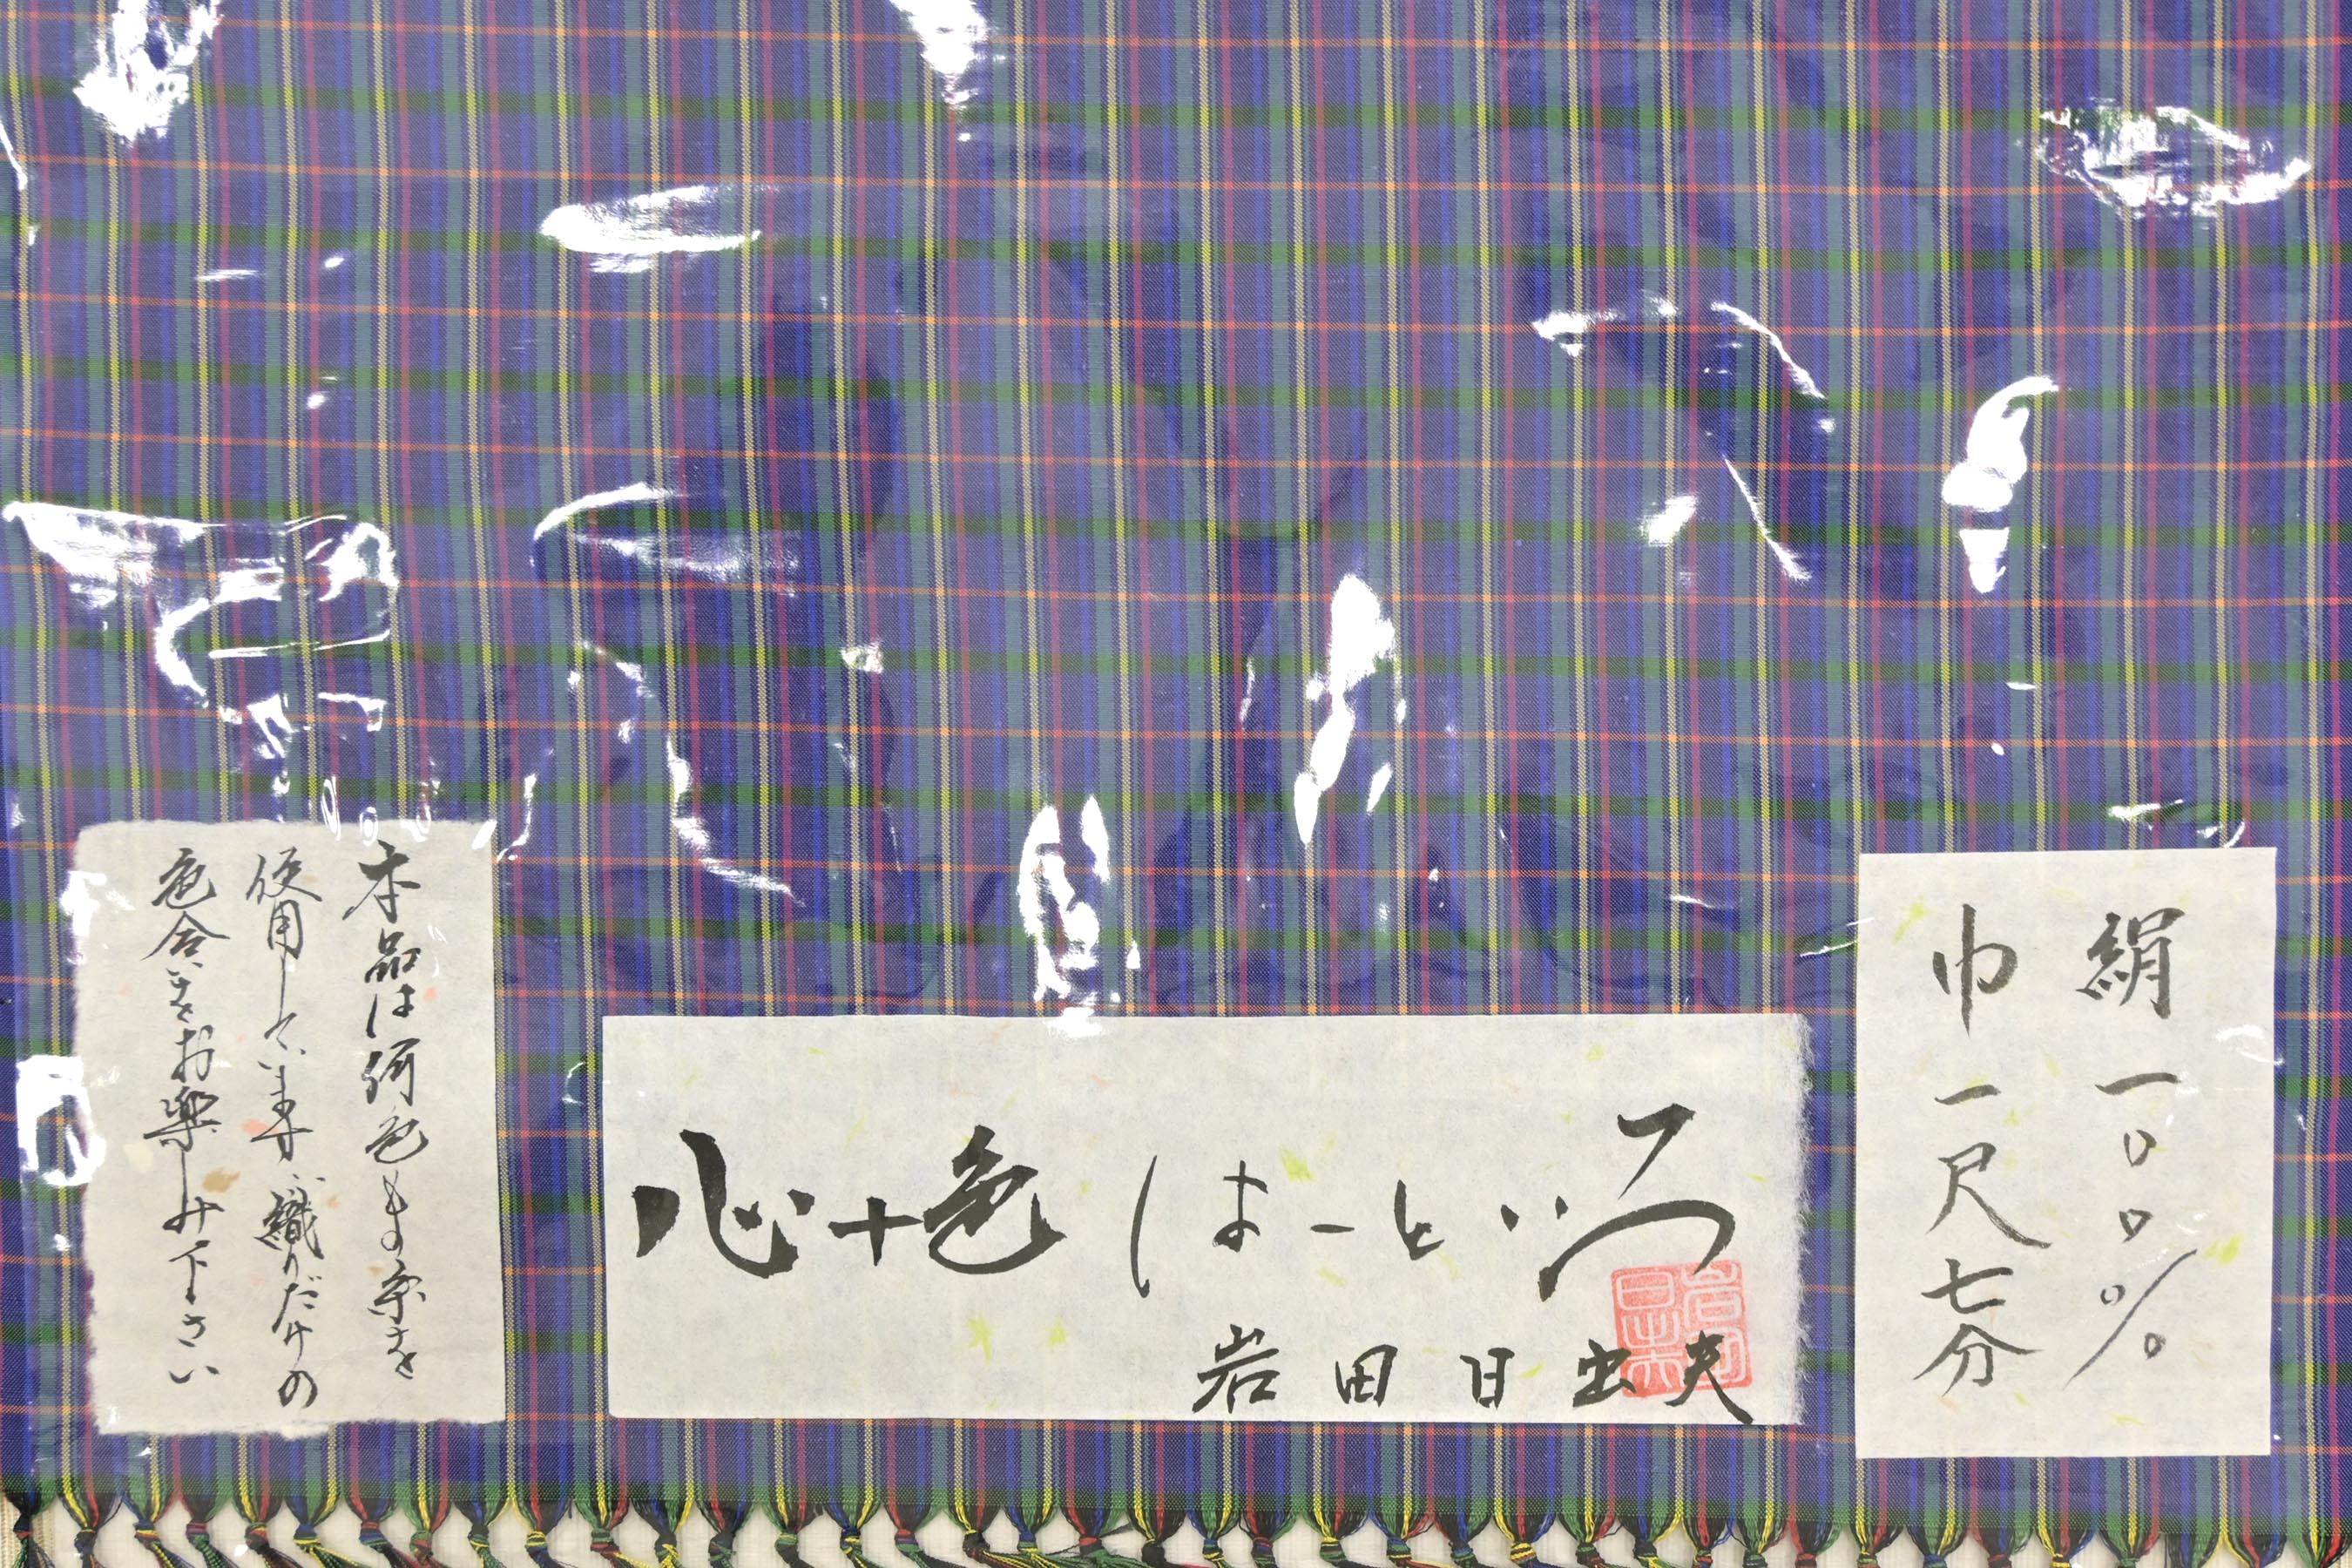 絹一〇〇%
巾一尺七分
心十色 はーといろ
岩田日出夫
本品は何色もの糸を
使用しています 織りだけの
色合いをお楽しみ下さい